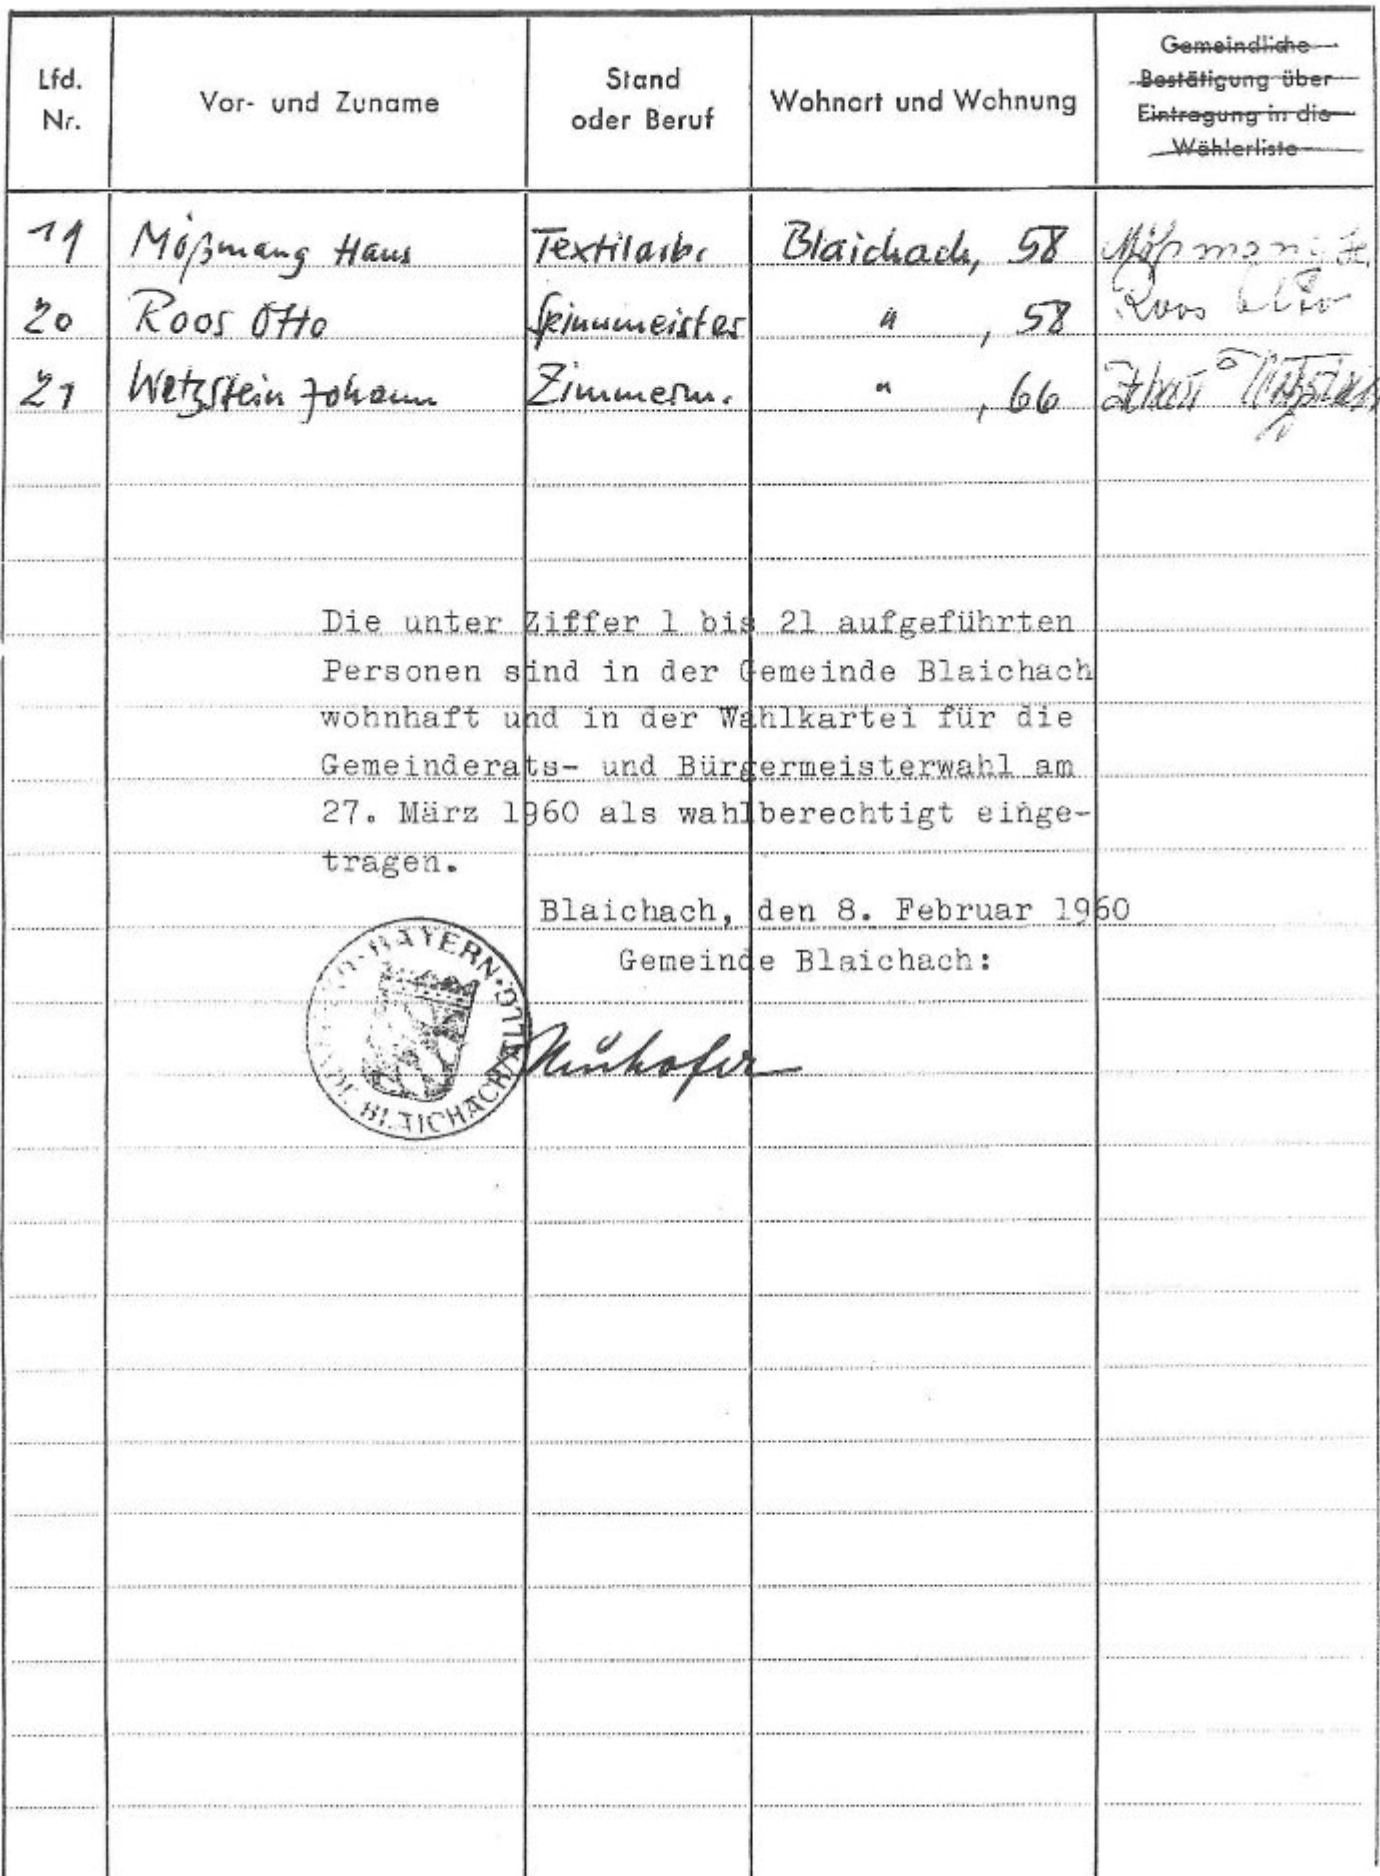 Lfd. Nr.
Vor- und Zuname
Stand oder Beruf
Wohnort und Wohnung
Gemeindliche Bestätigung über Eintragung in die Wählerliste
19 Mößmang Hans Textilarb. Blaichach, 58 Mößmang
20 Roos Otto Spinnmeister " , 58 Roos Otto
21 Wetzstein Johann Zimmerm. " , 66 Johann Wetzstein
Die unter Ziffer 1 bis 21 aufgeführten
Personen sind in der Gemeinde Blaichach
wohnhaft und in der Wahlkartei für die
Gemeinderats- und Bürgermeisterwahl am
27. März 1960 als wahlberechtigt einge-
tragen.
Blaichach, den 8. Februar 1960
Gemeinde Blaichach:
BAYERN
BLAICHACH/ALLG.